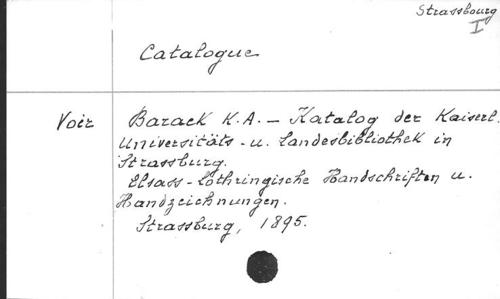 Strassbourg
I
Catalogue
Voir Barack K.A. – Katalog der Kaiserl.
Universitäts-u. Landesbibliothek in
Strassburg.
Elsass-Lothringische Handschriften u.
Handzeichnungen.
Strassburg, 1895.